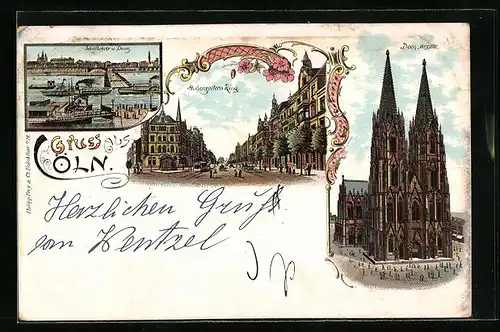 Schiffbrücke u. Deutz
Hohenzollern Ring
Dom, Westseite.
Gruss aus
CÖLN.
Herzlichen Gruß
von Wentzel